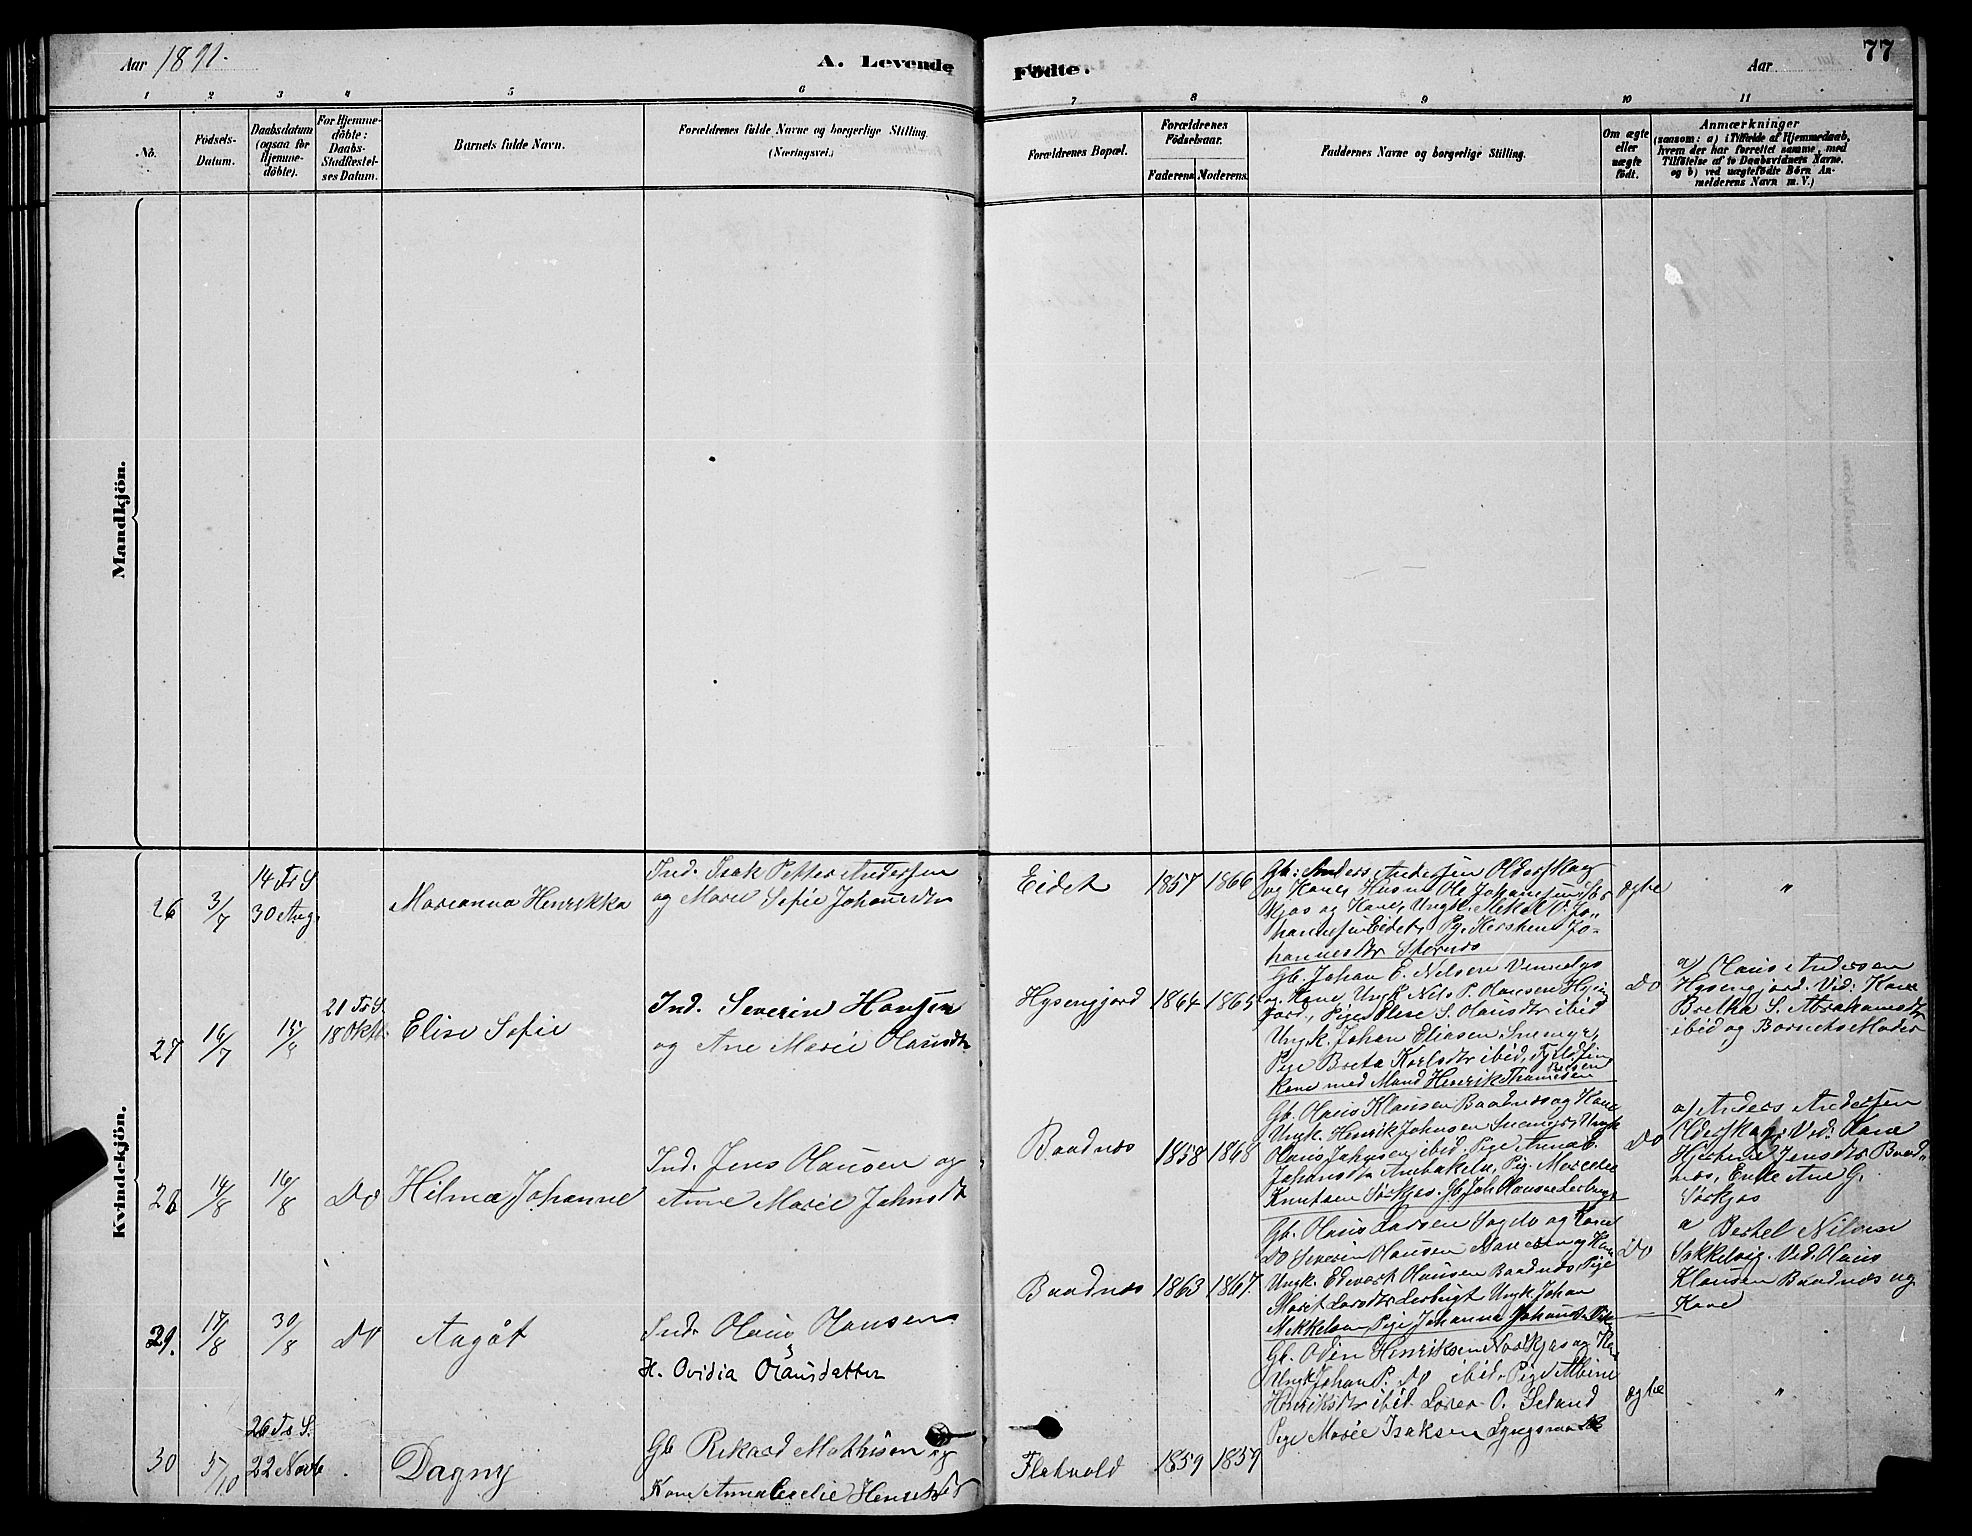 Aar 1891.
A. Levende
Fødte.
Aar
77
1
2
3
4
5
6
7
8
9
10
11
No.
Födsels-
Datum.
Daabsdatum
(ogsaa for
Hjemme-
døbte).
For Hjemme-
døbte:
Daabs-
Stadfæstel-
ses Datum.
Barnets fulde Navn.
Forældrenes fulde Navne og borgerlige Stilling.
(Næringsvei.)
Forældrenes Bopæl.
Forældrenes
Födselsaar.
Faderens
Moderens.
Faddernes Navne og borgerlige Stilling.
Om ægte
eller
uægte
født.
Anmærkninger
(saasom: a) i Tilfælde af Hjemmedaab,
hvem der har forrettet samme, med
Tilføielse af to Daabsvidners Navne.
og b) ved uægtefødte Børn An-
melderens Navn m. V.)
Mandkjön.
Kvindekjön.
26
3/7
14 Tr S
30 Aug
Marianna Henrikka
Ind. Isak Petter Andersen
og Marie Sofie Johansdtr
Eidet
1857
1866
Gb: Anders Andersen Olderskog
og Kone, Husm Ole Johansen Stor
og Kone, Ungk. Mikal O. Jo-
hannesen Eidet, Pg. Kirsten Jo-
hannesdtr Stornes
ægte
"
27
16/7
15/9
21 Tr S.
18 Oktb.
Elise Sofie
Ind. Severin Hansen
og Ane Marie Hansdtr
Hysengjord
1864
1865
Gb. Johan E. Nilsen
og Kone, Ungk. Nils P. Hansen Hysing
jord, Pige Elise S. Hansdtr ibid
Ungk. Johan Eliasen
Pige Breta Karlsdtr ibid,
Kone med Mand Henrik Thomesen
Do
a) Hans Andersen
Hysengjord. Vid: Kone
Bretha S. Abrahamsdtr
ibid og Barnets Moder
28
14/8
16/8
Do
Hilma Johanne
Ind. Jens Hansen og
Anne Marie Johnsdt
Baadnes
1858
1868
Gb. Hans Klausen Baadnes og Kone
Ungk. Henrik Johnsen
Hans Johnsen ibid, Pige Anna E.
Johansdtr
Knutsen Sørkjos. Gb. Joh Hansen Lerbugt
Do
a) Anders Andersen
Olderskog. Vid: Kone
Jensdtr Baad-
nes, Enke Ane G.
Sørkjos
29.
17/8
30/8
Do
Aagåt
Ind. Hans Hansen
H. Ovidia Olausdatter
Baadnes
1863
1867.
Gb. Hans Larsen og Kone
Do Severin Hansen og Kone
Ungk. Edvart Hansen Baadnes, Pige
Marit Larsdtr Lerbugt Ungk. Johan
Mikkelsen, Pige Johanna
Do
a Bertel Nilsen
Sakkelvig. Vid. Hans
Klausen Baadnes og
Kone
30
5/10
26 Tr S.
22 Novb
Dagny
Gb Rikard Mathisen og
Kone Anna Cecilie Henriksdtr
Flatvold
1859
1857
Gb. Odin Henriksen Nordkjos og Kone
Ungk Johan P. Do ibid. Pige Albine
Henriksdtr ibid. Lærer O. Iseland
Pige Marie Isaksen
ægte
"